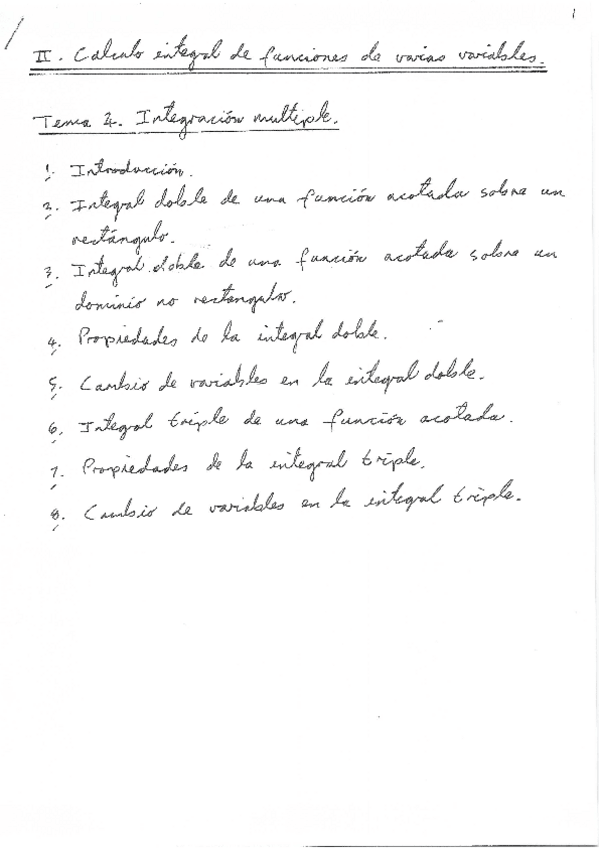 1
II. Cálculo integral de funciones de varias variables.
Tema 4. Integración multiple.
1. Introducción.
2. Integral doble de una función acotada sobre un
rectángulo.
3. Integral doble de una función acotada sobre un
dominio no rectangular.
4. Propiedades de la integral doble.
5. Cambio de variables en la integral doble.
6. Integral triple de una función acotada.
7. Propiedades de la integral triple.
8. Cambio de variables en la integral triple.